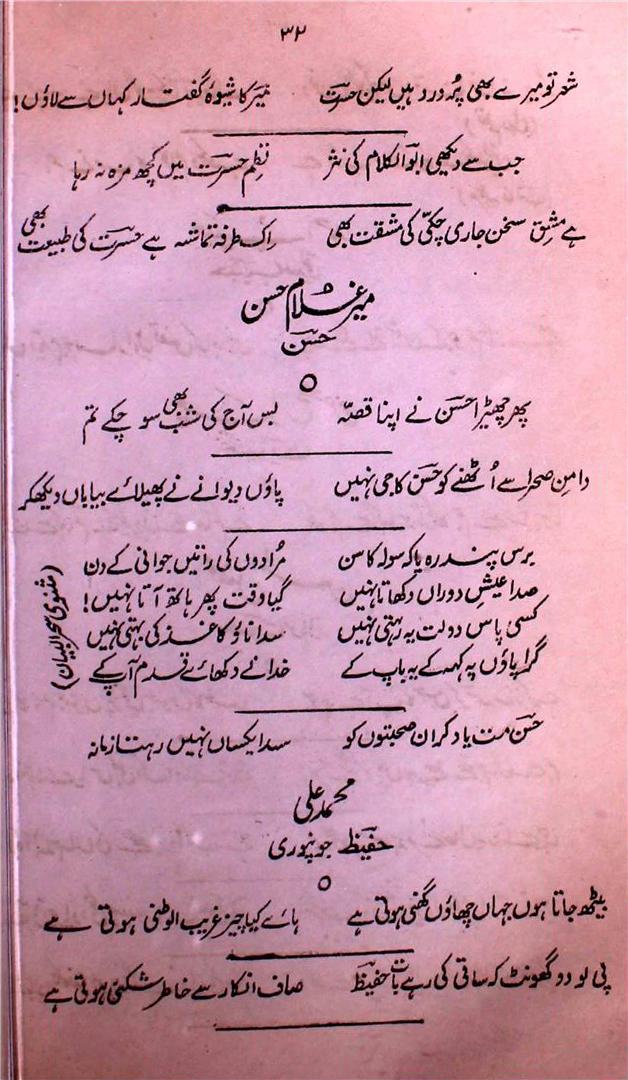 ۳۲
شعر تو میر سے بھی پُر درد ہیں لیکن حسرتؔ میرؔ کا شیوۂ گفتار کہاں سے لاؤں!
جب سے دیکھی ابوالکلام کی نثر نظمِ حسرتؔ میں کچھ مزہ نہ رہا
ہے مشقِ سخن جاری چکّی کی مشقت بھی اِک طرفہ تماشہ ہے حسرتؔ کی طبیعت بھی
میر غلام حسن
حسنؔ
پھر چھیڑا حسنؔ نے اپنا قصّہ بس آج کی شب بھی سو چکے ہم
دامنِ صحرا سے اُٹھنے کو حسنؔ کا جی نہیں پاؤں دیوانے نے پھیلائے بیاباں دیکھکر
برس پندرہ یا کہ سولہ کا سن مُرادوں کی راتیں جوانی کے دن
صدا عیشِ دوراں دکھاتا نہیں گیا وقت پھر ہاتھ آتا نہیں!
کسی پاس دولت یہ رہتی نہیں سدا ناؤ کاغذ کی بہتی نہیں
گرا پاؤں پہ کہہ کے یہ باپ کے خدا نے دکھائے قدم آپ کے
(مثنوی سحرالبیان)
حسنؔ مت یاد کر ان صحبتوں کو سدا یکساں نہیں رہتا زمانہ
محمد علی
حفیظؔ جونپوری
بیٹھ جاتا ہوں جہاں چھاؤں گھنی ہوتی ہے ہائے کیا چیز غریب الوطنی ہوتی ہے
پی لو دو گھونٹ کہ ساقی کی رہے بات حفیظؔ صاف انکار سے خاطر شکنی ہوتی ہے